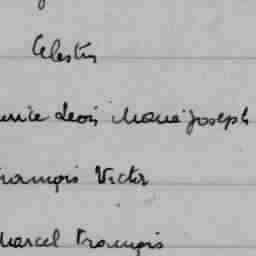 Célestin
Léon Marie Joseph
François Victor
Marcel François